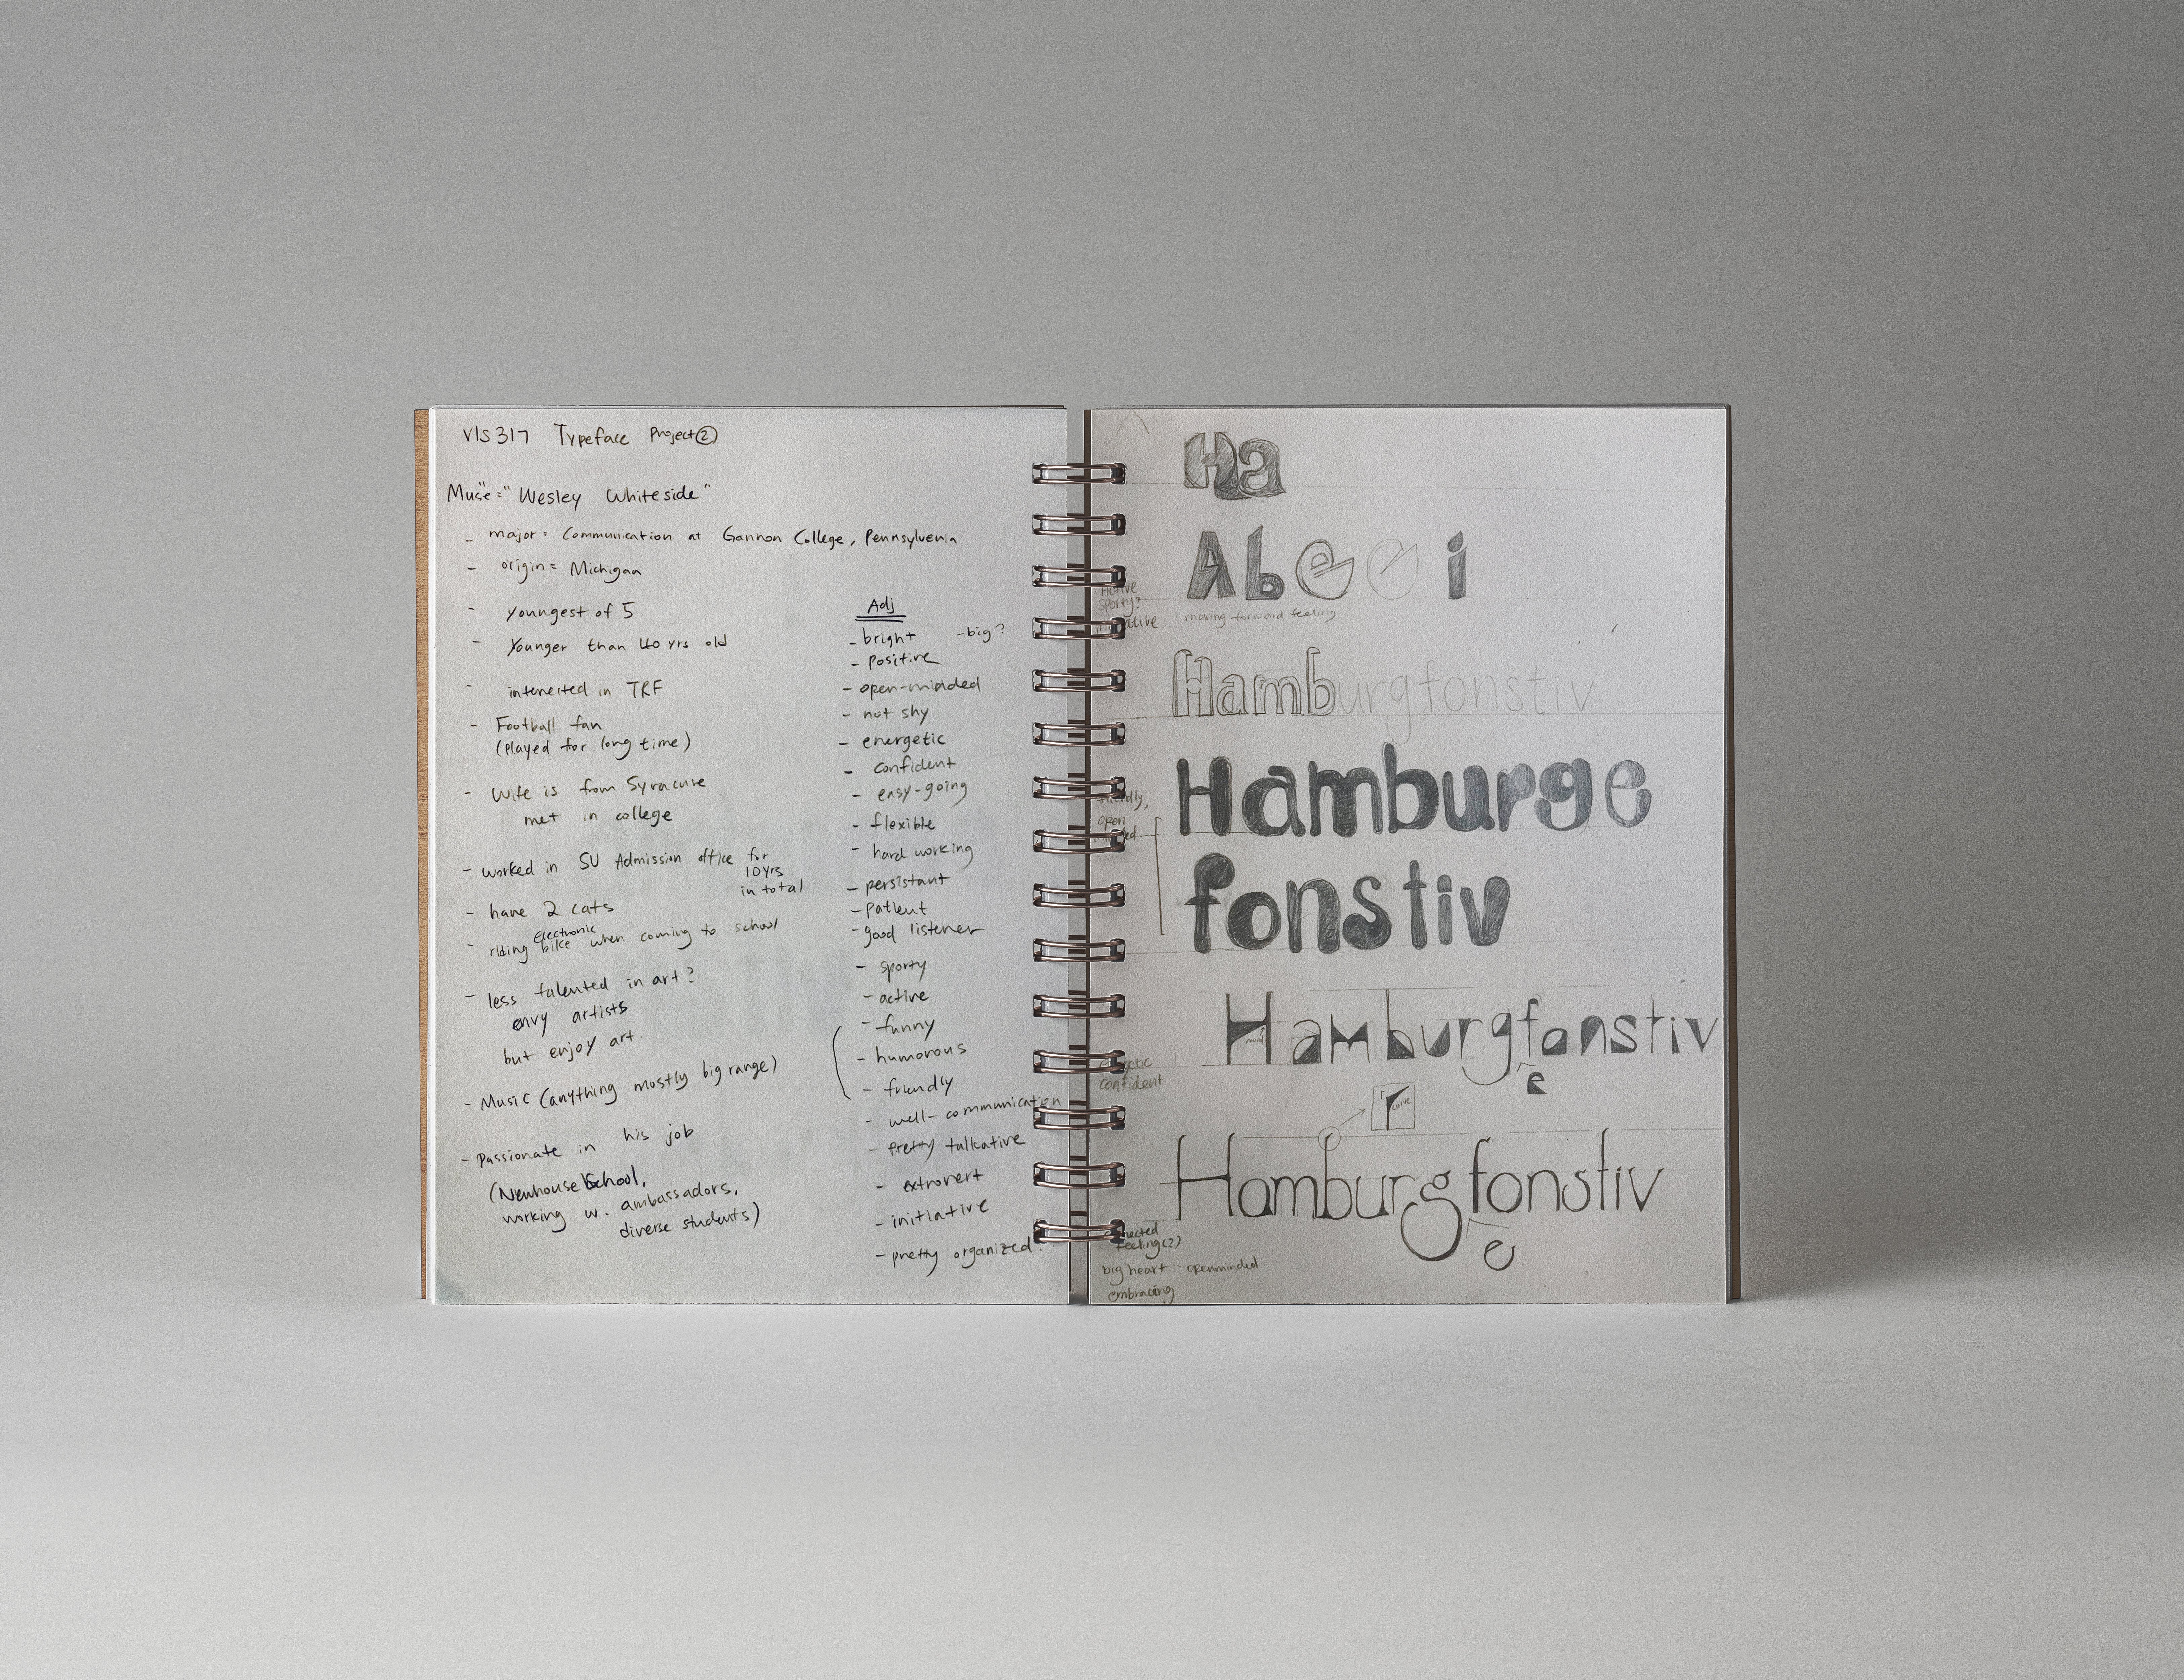 VIS317 Typeface Project②
Muse = "Wesley Whiteside"
- major = Communication at Gannon College, Pennsylvenia
- origin = Michigan
- Youngest of 5
- Younger than 40 yrs old
- interested in TRF
- Football fan
(played for long time)
- Wife is from Syracuse
met in college
- worked in SU Admission office for
10yrs
in total
- have 2 cats
- riding Electronic bike when coming to school
- less talented in art?
envy artists
but enjoy art.
- Music (anything mostly big range)
- Passionate in his job
(Newhouse School,
working w. ambassadors,
diverse students)
Adj
- bright - big?
- positive
- open-minded
- not shy
- energetic
- confident
- easy-going
- flexible
- hard working
- persistant
- patient
- good listener
- sporty
- active
- funny
- humorous
- friendly
- well-communication
- pretty talkative
- extrovert
- initiative
- pretty organized?
Ha
A b e e i
Active
sporty?
moving-forward feeling
Hamburgfonstiv
Hamburge
fonstiv
open
Hamburgfonstiv
e
confident
curve
Hamburgfonstiv
e
feeling(?)
big heart - openminded
embracing